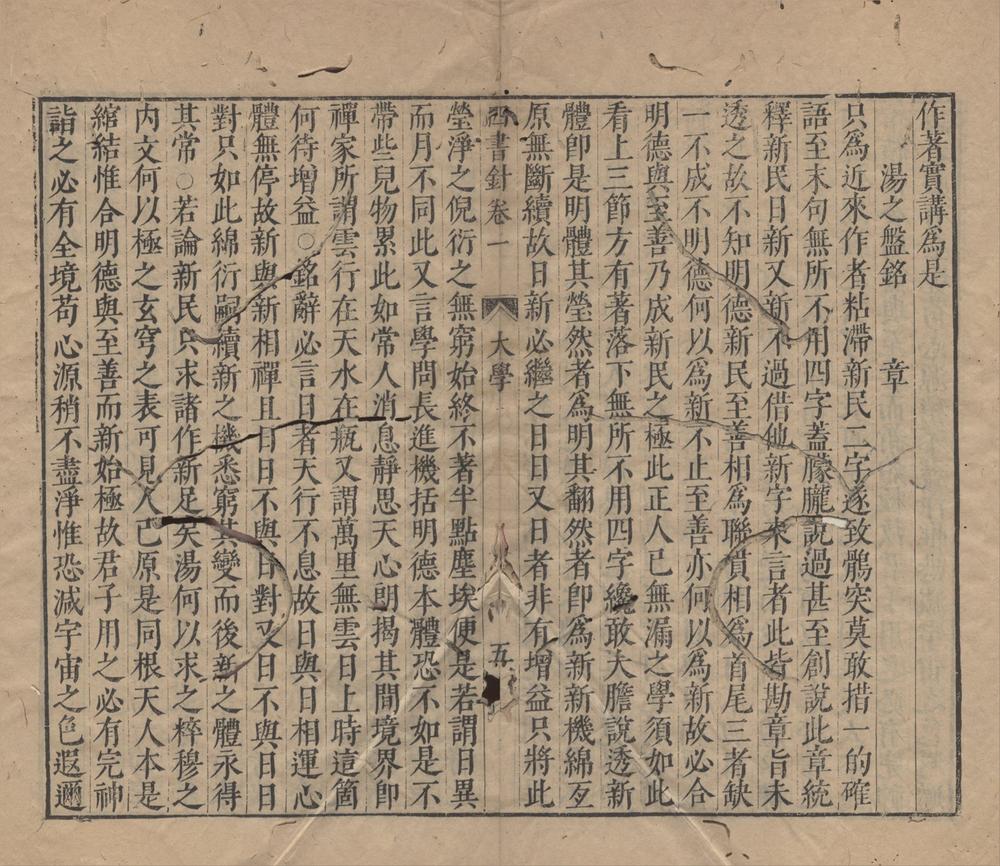 作著實講爲是
湯之盤銘　章
只爲近來作者粘滯新民二字遂致鶻突莫敢措一的確
語至末句無所不用四字蓋朦朧說過甚至創說此章統
釋新民日新又新不過借他新字來言者此皆勘章旨未
透之故不知明德新民至善相爲聯貫相爲首尾三者缺
一不成不明德何以爲新不止至善亦何以爲新故必合
明德與至善乃成新民之極此正人已無漏之學須如此
看上三節方有著落下無所不用四字纔敢大膽說透新
體卽是明體其瑩然者爲明其翻然者卽爲新新機綿亙
原無斷續故日新必繼之日日又日者非有增益只將此
四書針卷一　大學　五
瑩淨之倪衍之無窮始終不著半點塵埃便是若謂日異
而月不同此又言學問長進機括明德本體恐不如是不
帶些兒物累此如常人消息靜思天心朗揭其間境界卽
禪家所謂雲行在天水在瓶又謂萬里無雲日上時這箇
何待增益○銘辭必言日者天行不息故日與日相運心
體無停故新與新相禪且日日不與日對又日不與日日
對只如此綿衍嗣續新之機悉窮其變而後新之體永得
其常○若論新民只求諸作新足矣湯何以求之粹穆之
內文何以極之玄穹之表可見人已原是同根天人本是
綰結惟合明德與至善而新始極故君子用之必有完神
詣之必有全境苟心源稍不盡淨惟恐減宇宙之色遐邇